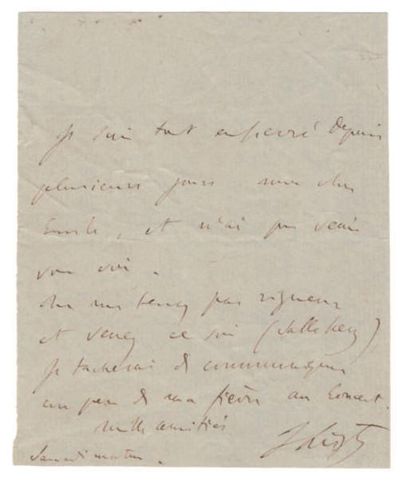 Je suis tout enfievré depuis
plusieurs jours mon cher
Emile, et n'ai pu venir
vous voir.
Ne me tenez pas rigueur
et venez ce soir (Salle Herz)
je tacherai de communiquer
un peu de ma fièvre au Concert.
mille amitiés
FLiszt
Samedi matin.